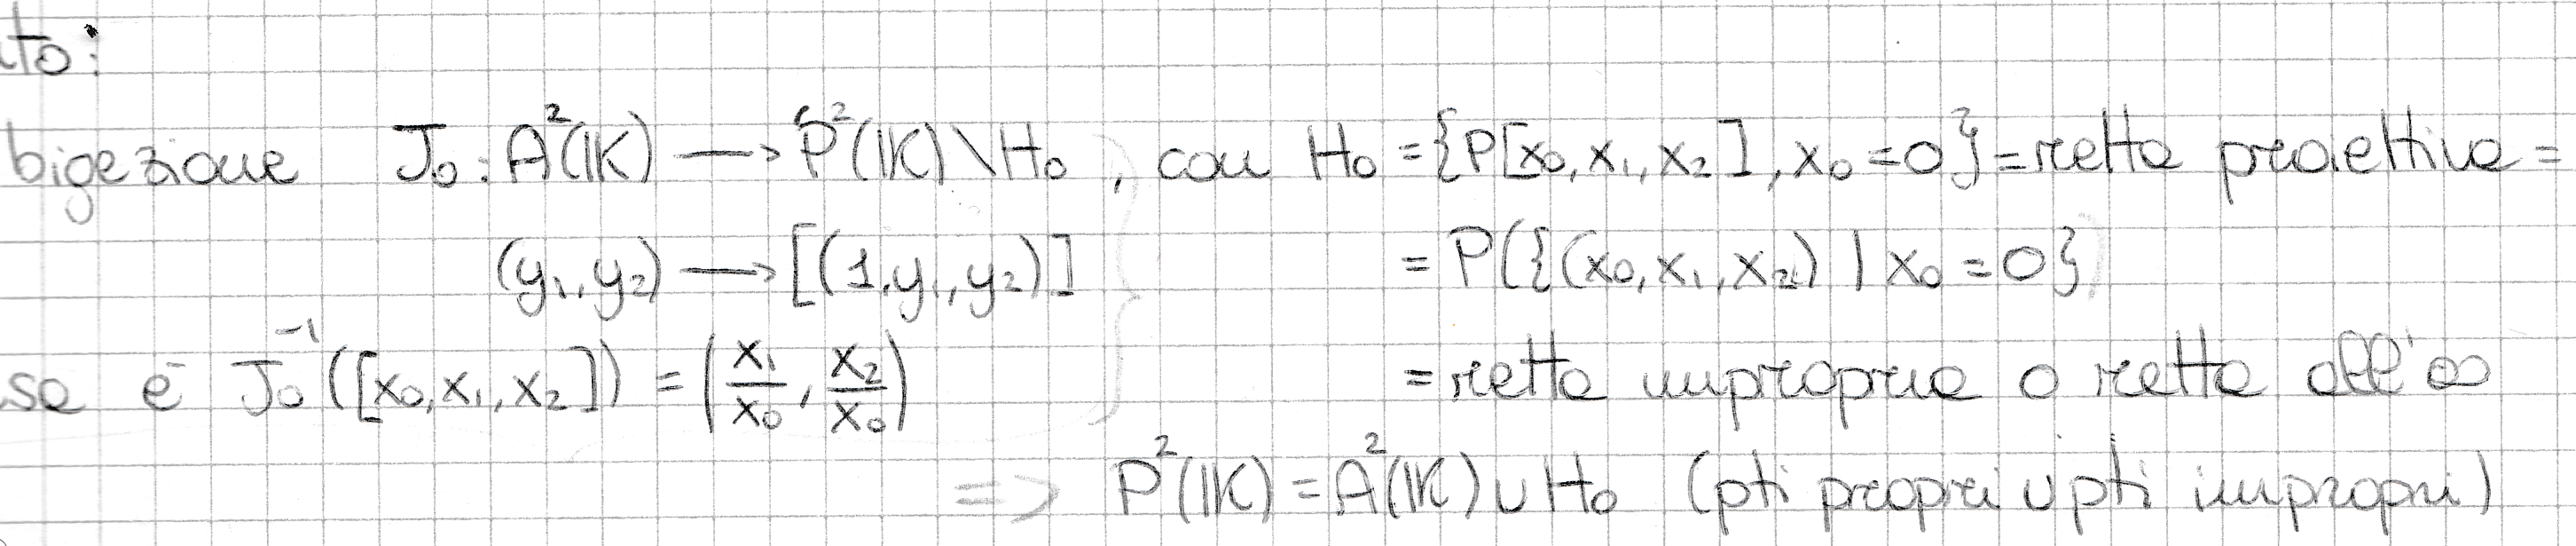 ito:
bigezione J₀: A²(K) → P²(K) \ H₀, con H₀ = {P[x₀, x₁, x₂], x₀ = 0} = retta proiettiva =
(y₁, y₂) → [(1, y₁, y₂)] = P({(x₀, x₁, x₂) | x₀ = 0}
sa è J₀⁻¹([x₀, x₁, x₂]) = (x₁/x₀, x₂/x₀) = retta impropria o retta all'∞
=> P²(K) = A²(K) ∪ H₀ (pti propri ∪ pti impropri)